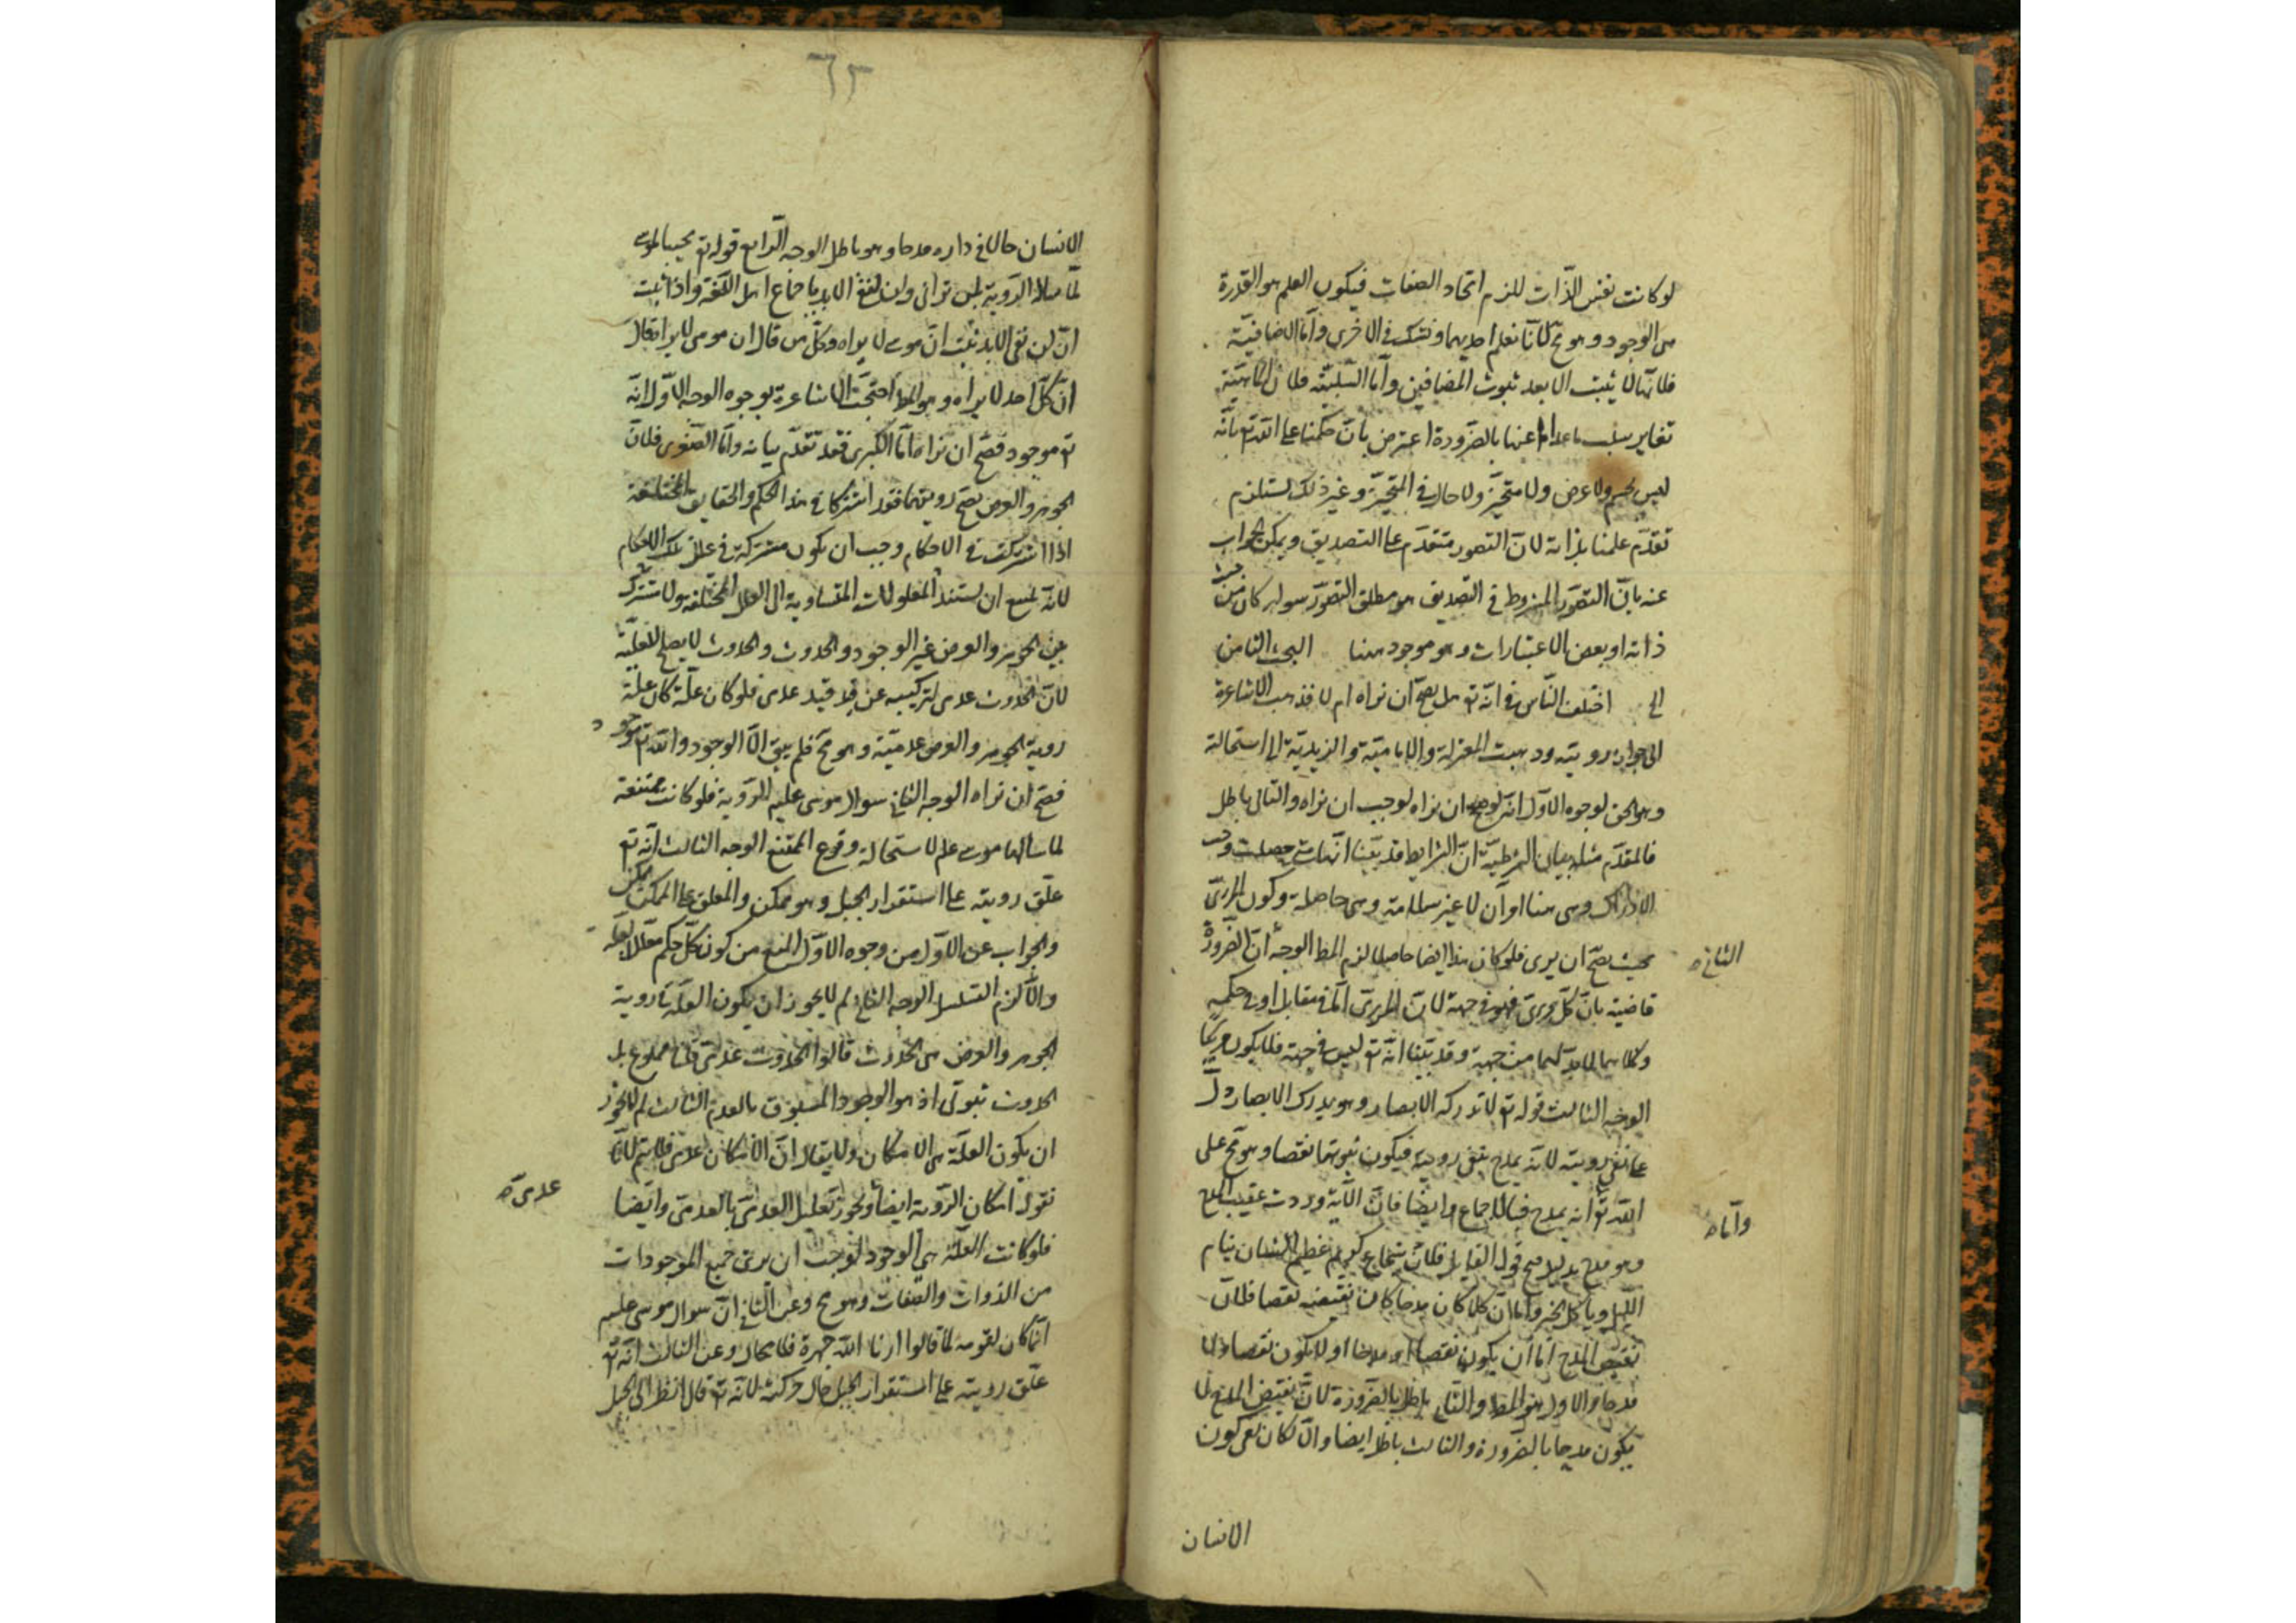 لو كانت نفس الذّات للزم اتحاد الصفات فيكون العلم هو القدرة
هى الوجود وهو مح لانا نعلم احديهما ونشك فى الاخرى وامّا الاضافيّة
فلانّها لا يثبت الا بعد ثبوت المضافين وامّا السّلبيّة فلان الماهيّة
تغاير سلب ما عداها عنها بالضّرورة اعترض بانّ حكمنا على اللّه تع بانّه
ليس بجسم ولا عرض ولا متحيّز ولا حال فى المتحيّز وغير ذلك يستلزم
تقدّم علمنا بذاته لانّ التصور متقدّم على التصديق ويمكن الجواب
عنه بانّ التصوّر المشروط فى التصديق هو مطلق التصوّر سواء كان من حيث
ذاته او بعض الاعتبارات وهو موجود ههنا البحث الثامن
اختلف النّاس فى انّه تع هل يصحّ ان نراه ام لا فذهب الاشاعرة
الى جواز رويته وذهبت المعتزلة والاماميّة والزيديّة الى استحالته
وهو الحق لوجوه الاوّل انّه لو صح ان نراه لوجب ان نراه والتالى باطل
فالمقدّم مثله بيان الشرطيّة انّ الشرايط قد بيّنّا انّها متى حصلت وجب
الادراك وهى هنا اوان لا غير سلامة وهى حاصلة وكون المرئىّ
بحيث يصحّ ان يرى فلو كان هذا ايضا حاصلا لزم المط الوجه انّ الضّرورة
الثانى صح
قاضية بانّ كلّ مرئىّ فهو فى جهة لانّ المرئىّ امّا فى مقابل او فى حكمه
وكلاهما لا بدّ لهما من جهة وقد بيّنا انّه تع ليس فى جهة فلا يكون مرئيّا
الوجه الثالث قوله تع لا تدركه الابصار وهو يدرك الابصار دلّ
على نفى رويته لانّه يمدح بنفى رويته فيكون ثبوتها نقصا وهو مح على
اللّه تع انه يمدح فبالاجماع وايضا فانّ الآية وردت عقيب المدح
وامّا صح
وهو مدح بدلا صح قول القايل فلان شجاع كريم عظيم الشان ينام
اللّيل وياكل الخبز وامّا انّ كلما كان مدحا كان نقيضه نقصا فلانّ
نقيض المدح امّا ان يكون نقصا او مدحا او لا يكون نقصا ولا
مدحا والاول هو المط والثانى باطل بالضّرورة لانّ نقيض المدح لا
يكون مدحا بالضّرورة والثالث باطل ايضا والّا لكان نفى كون
الانسان
٦٢
الانسان حالا فى داره مدحا وهو باطل الوجه الرّابع قوله تع مجيبا لموسى
لمّا سال الرّوية لن ترانى ولن لنفى الابد باجماع اهل اللّغة واذا ثبت
انّ لن لنفى الابد ثبت انّ موسى لا يراه وكلّ من قال ان موسى لا يراه قال
انّ كلّ احد لا يراه وهو المط احتجّت الاشاعرة بوجوه الوجه الاوّل انّه
تع موجود فصحّ ان نراه امّا الكبرى فقد تقدّم بيانه وامّا الصّغرى فلانّ
الجوهر والعرض يصحّ رويتهما فقد اشتركا فى هذا الحكم والحقايق المختلفة
اذا اشتركت فى الاحكام وجب ان يكون مشتركة فى علل تلك الاحكام
لانّه يمتنع ان يستند المعلولات المتساوية الى العلل المختلفة ولا مشترك
بين الجوهر والعرض غير الوجود والحدوث والحدوث لا يصلح للعلّيّة
لانّ الحدوث عدمى لتركيبه عن قيد عدمى فلو كان علّة كان علّة
روية الجوهر والعرض عدميّة وهو مح فلم يبق الّا الوجود واللّه تع موجود
فصحّ ان نراه الوجه الثانى سوال موسى عليه الرّوية فلو كانت ممتنعة
لما سالها موسى علم لاستحالة وقوع الممتنع الوجه الثالث انّه تع
علّق رويته على استقرار الجبل وهو ممكن والمعلق على الممكن ممكن
والجواب عن الاوّل من وجوه الاوّل المنع من كون كلّ حكم معلّلا بعلّة
والّا لزم التسلسل الوجه الثانى لم لا يجوز ان يكون العلّة فى روية
الجوهر والعرض هى الحدوث قالوا الحدوث عدمىّ قلنا ممنوع بل
الحدوث ثبوتى اذ هو الوجود المسبوق بالعدم الثالث لم لا يجوز
ان يكون العلّة هى الامكان ولا يقال انّ الامكان عدمىّ فلا يتم لانّا
نقول امكان الرّوية ايضا ويجوز تعليل العدمىّ بالعدمىّ وايضا
عدمىّ صح
فلو كانت العلّة هى الوجود لوجب ان يرى جميع الموجودات
من الذوات والصفات وهو مح وعن الثانى انّ سوال موسى عليه
انّما كان لقومه لمّا قالوا ارنا اللّه جهرة فلا محال وعن الثالث انّه تع
علّق رويته على استقرار الجبل حال حركته لانّه تع قال انظر الى الجبل